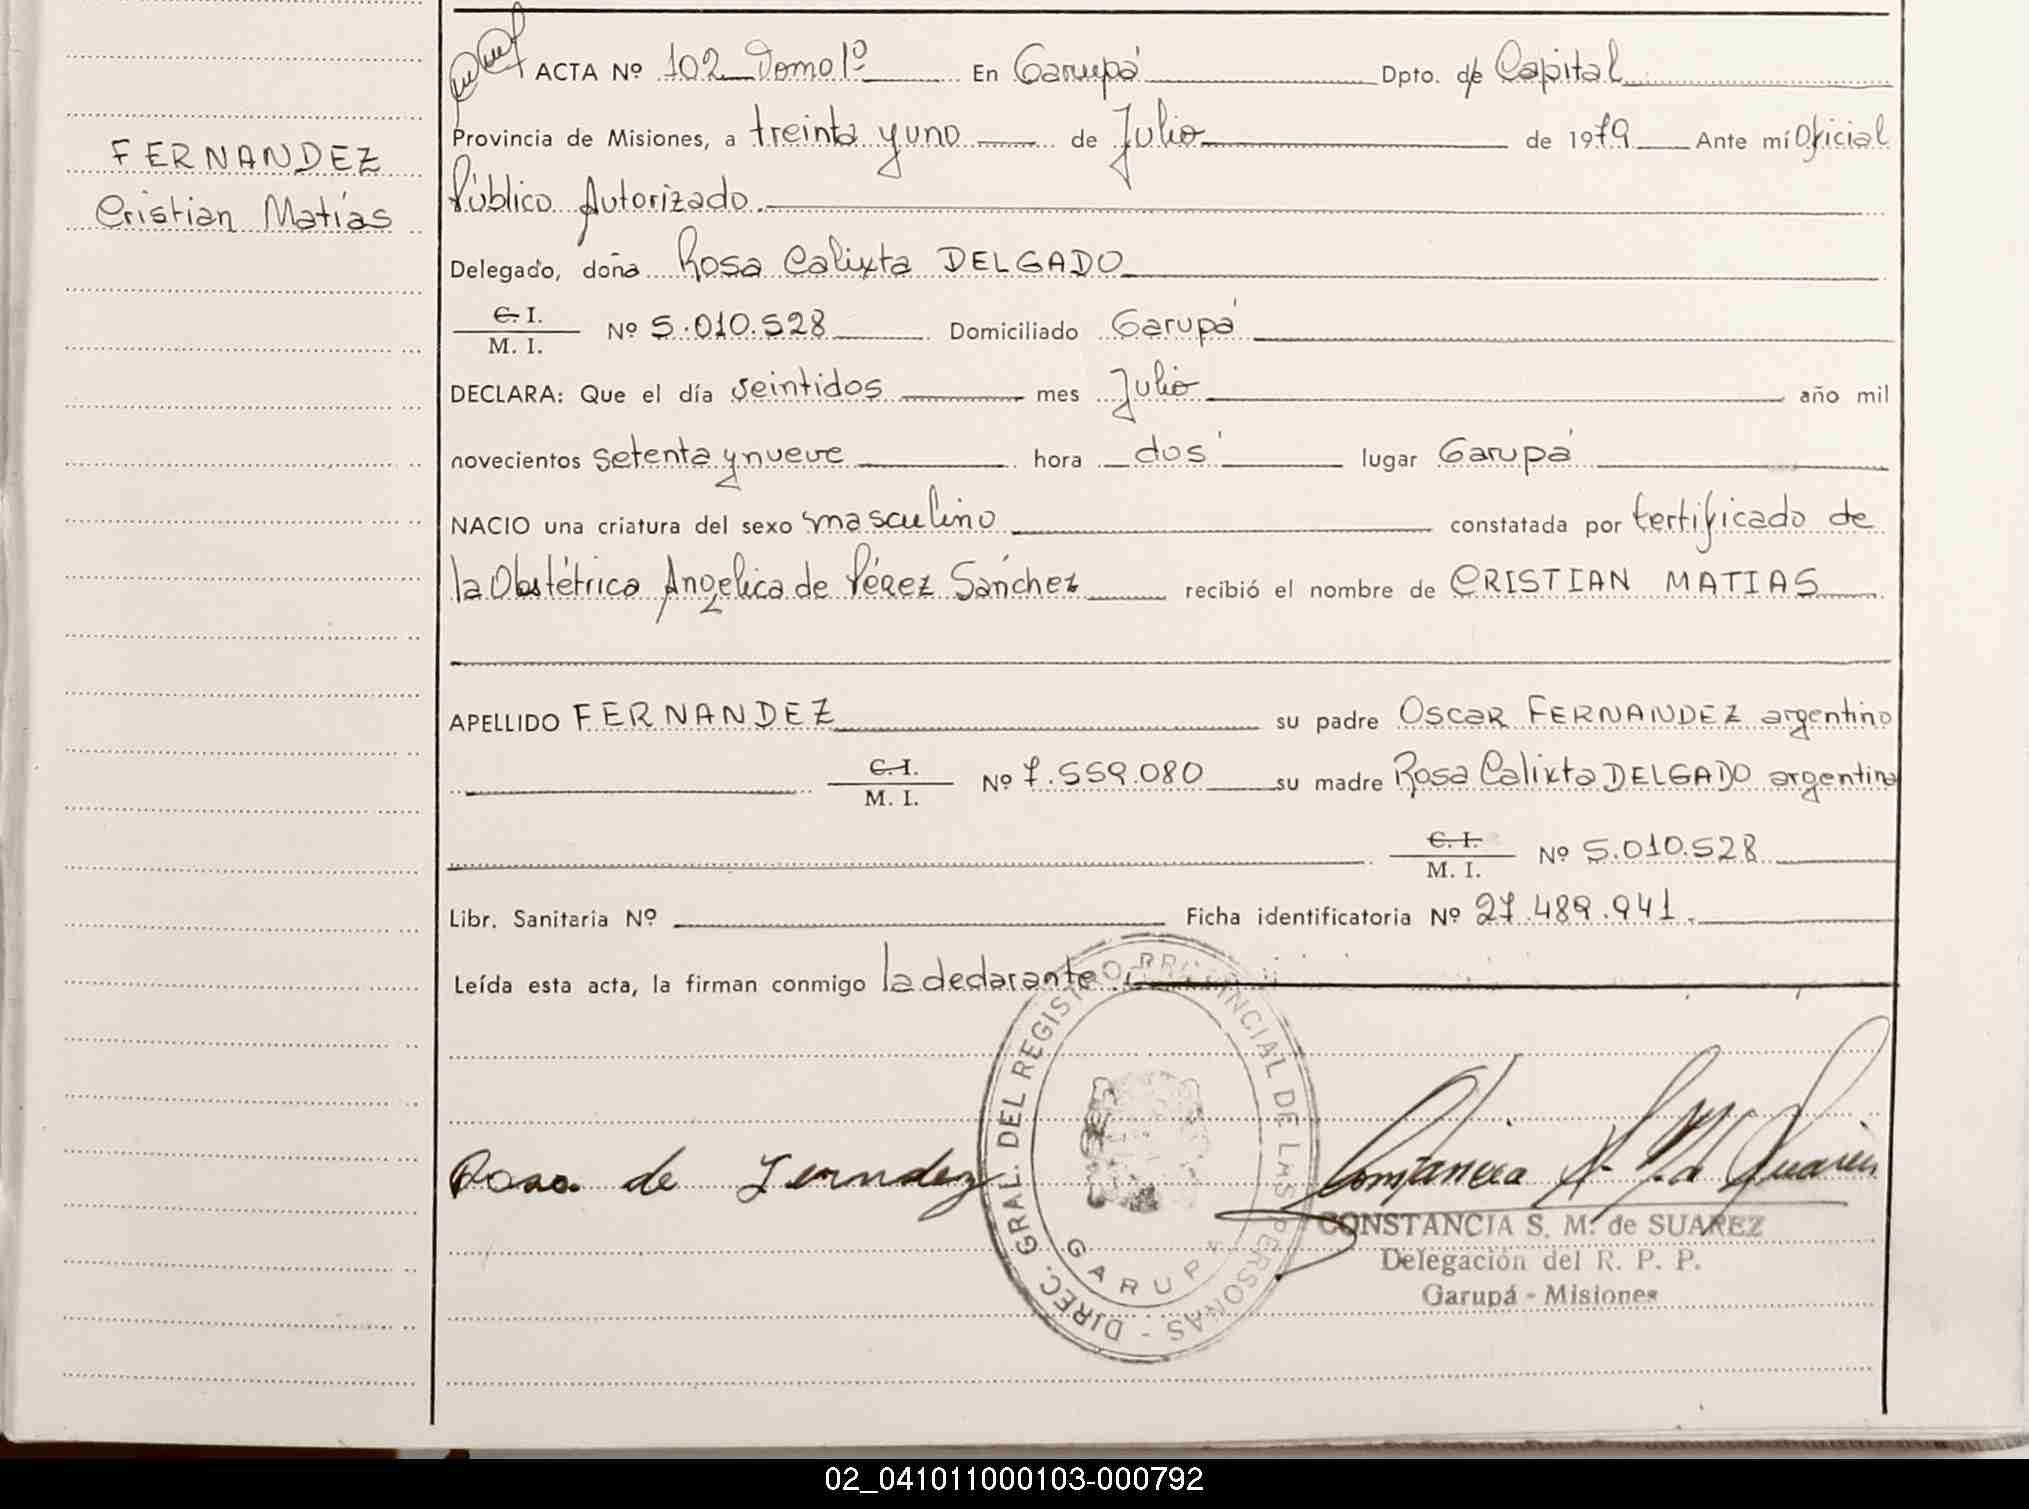 ACTA Nº 102 Tomo 1º En Garupá Dpto. de Capital
Provincia de Misiones, a treinta y uno de Julio de 1979 Ante mí Oficial
FERNANDEZ
Público Autorizado.
Cristian Matías
Delegado, doña Rosa Calixta DELGADO
C. I.
M. I. Nº 5.010.528 Domiciliado Garupá
DECLARA: Que el día veintidos mes Julio año mil
novecientos setenta y nueve hora dos lugar Garupá
NACIO una criatura del sexo masculino constatada por certificado de
la Obstétrica Angelica de Pérez Sánchez recibió el nombre de CRISTIAN MATIAS
APELLIDO FERNANDEZ su padre Oscar FERNANDEZ argentino
C. I.
M. I. Nº 7.559.080 su madre Rosa Calixta DELGADO argentina
C. I.
M. I. Nº 5.010.528
Libr. Sanitaria Nº Ficha identificatoria Nº 27.489.941.
Leída esta acta, la firman conmigo la declarante
DIREC. GRAL. DEL REGISTRO PROVINCIAL DE LAS PERSONAS -
GARUPA
Rosa de Ferndez
CONSTANCIA S. M. de SUAREZ
Delegación del R. P. P.
Garupá - Misiones
02_041011000103-000792